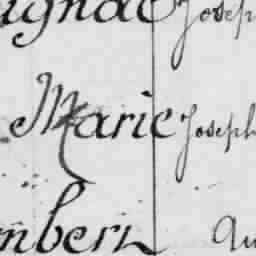 ignac Joseph
Marie Joseph
mbert Au